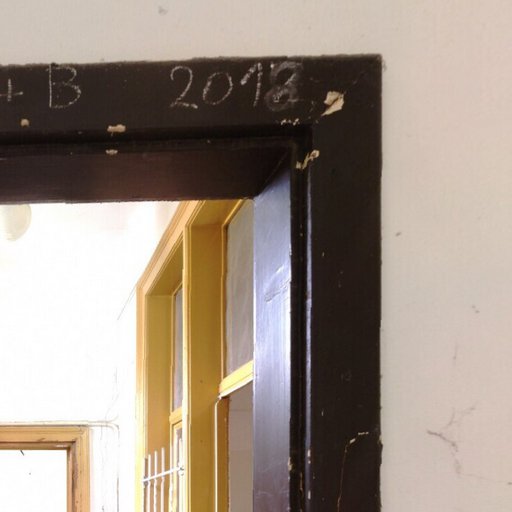 + B 2018